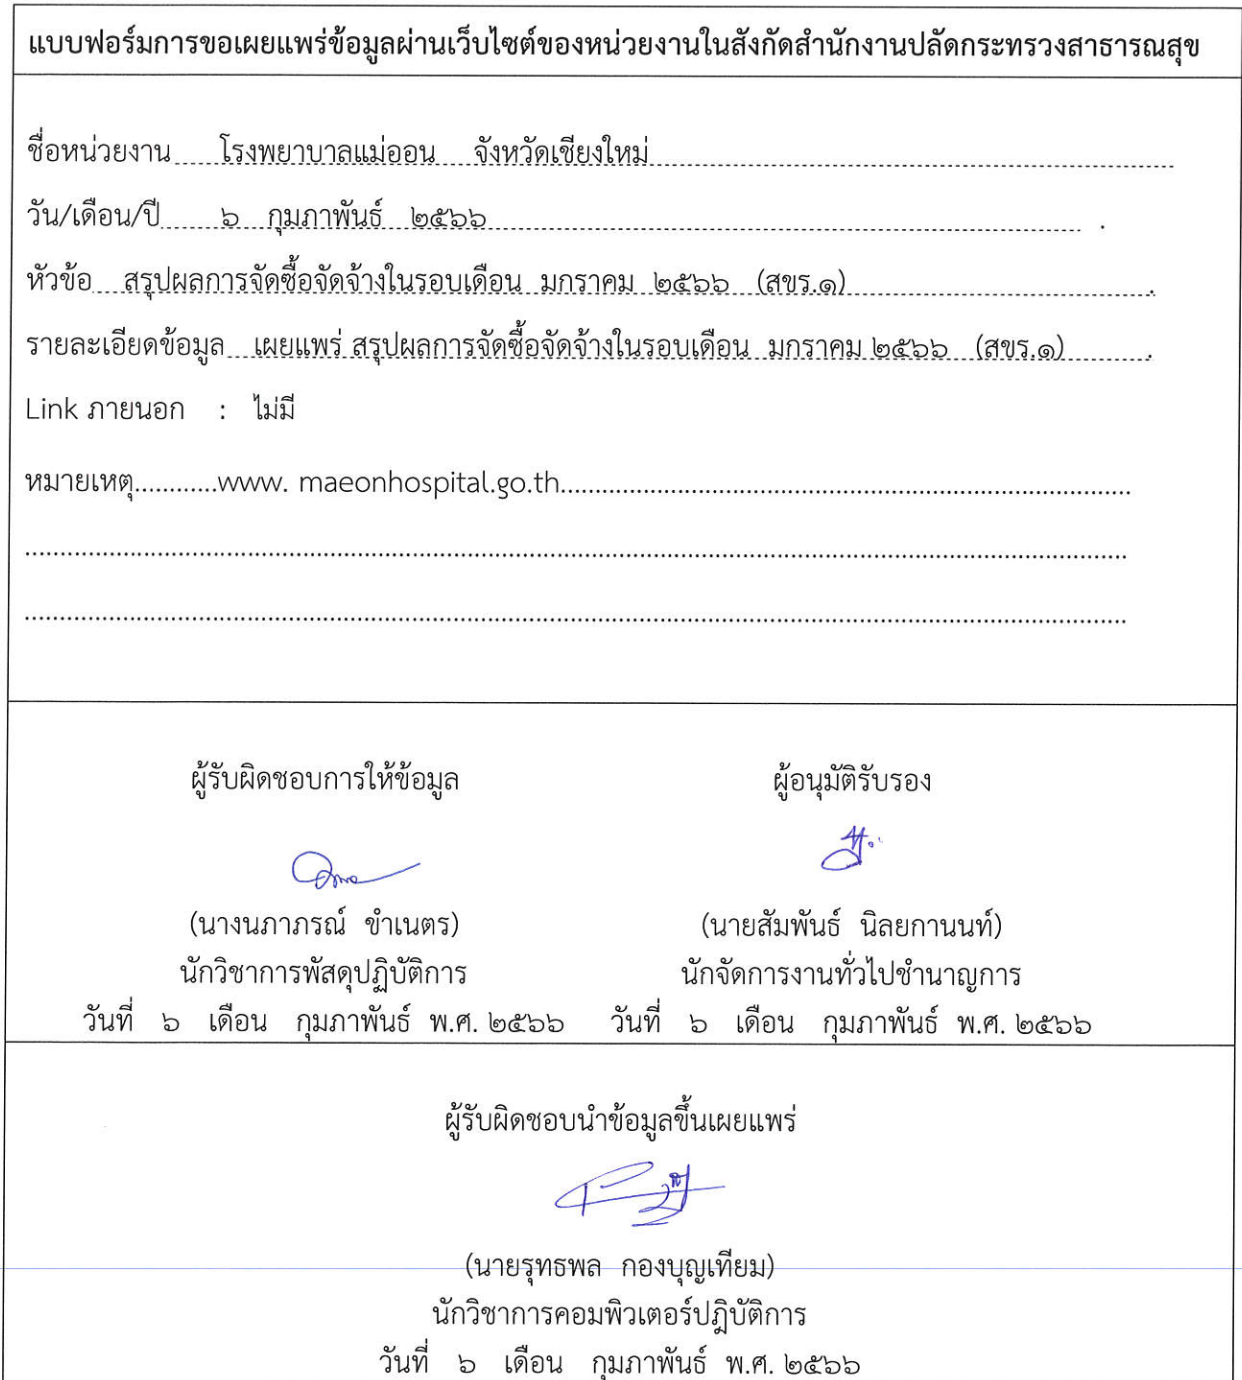 แบบฟอร์มการขอเผยแพร่ข้อมูลผ่านเว็บไซต์ของหน่วยงานในสังกัดสำนักงานปลัดกระทรวงสาธารณสุข
ชื่อหน่วยงาน โรงพยาบาลแม่ออน จังหวัดเชียงใหม่
วัน/เดือน/ปี ๖ กุมภาพันธ์ ๒๕๖๖ .
หัวข้อ สรุปผลการจัดซื้อจัดจ้างในรอบเดือน มกราคม ๒๕๖๖ (สขร.๑) .
รายละเอียดข้อมูล เผยแพร่ สรุปผลการจัดซื้อจัดจ้างในรอบเดือน มกราคม ๒๕๖๖ (สขร.๑) .
Link ภายนอก : ไม่มี
หมายเหตุ............www. maeonhospital.go.th....................................................................................
ผู้รับผิดชอบการให้ข้อมูล ผู้อนุมัติรับรอง
(นางนภาภรณ์ ขำเนตร) (นายสัมพันธ์ นิลยกานนท์)
นักวิชาการพัสดุปฏิบัติการ นักจัดการงานทั่วไปชำนาญการ
วันที่ ๖ เดือน กุมภาพันธ์ พ.ศ. ๒๕๖๖ วันที่ ๖ เดือน กุมภาพันธ์ พ.ศ. ๒๕๖๖
ผู้รับผิดชอบนำข้อมูลขึ้นเผยแพร่
(นายรุทธพล กองบุญเทียม)
นักวิชาการคอมพิวเตอร์ปฏิบัติการ
วันที่ ๖ เดือน กุมภาพันธ์ พ.ศ. ๒๕๖๖